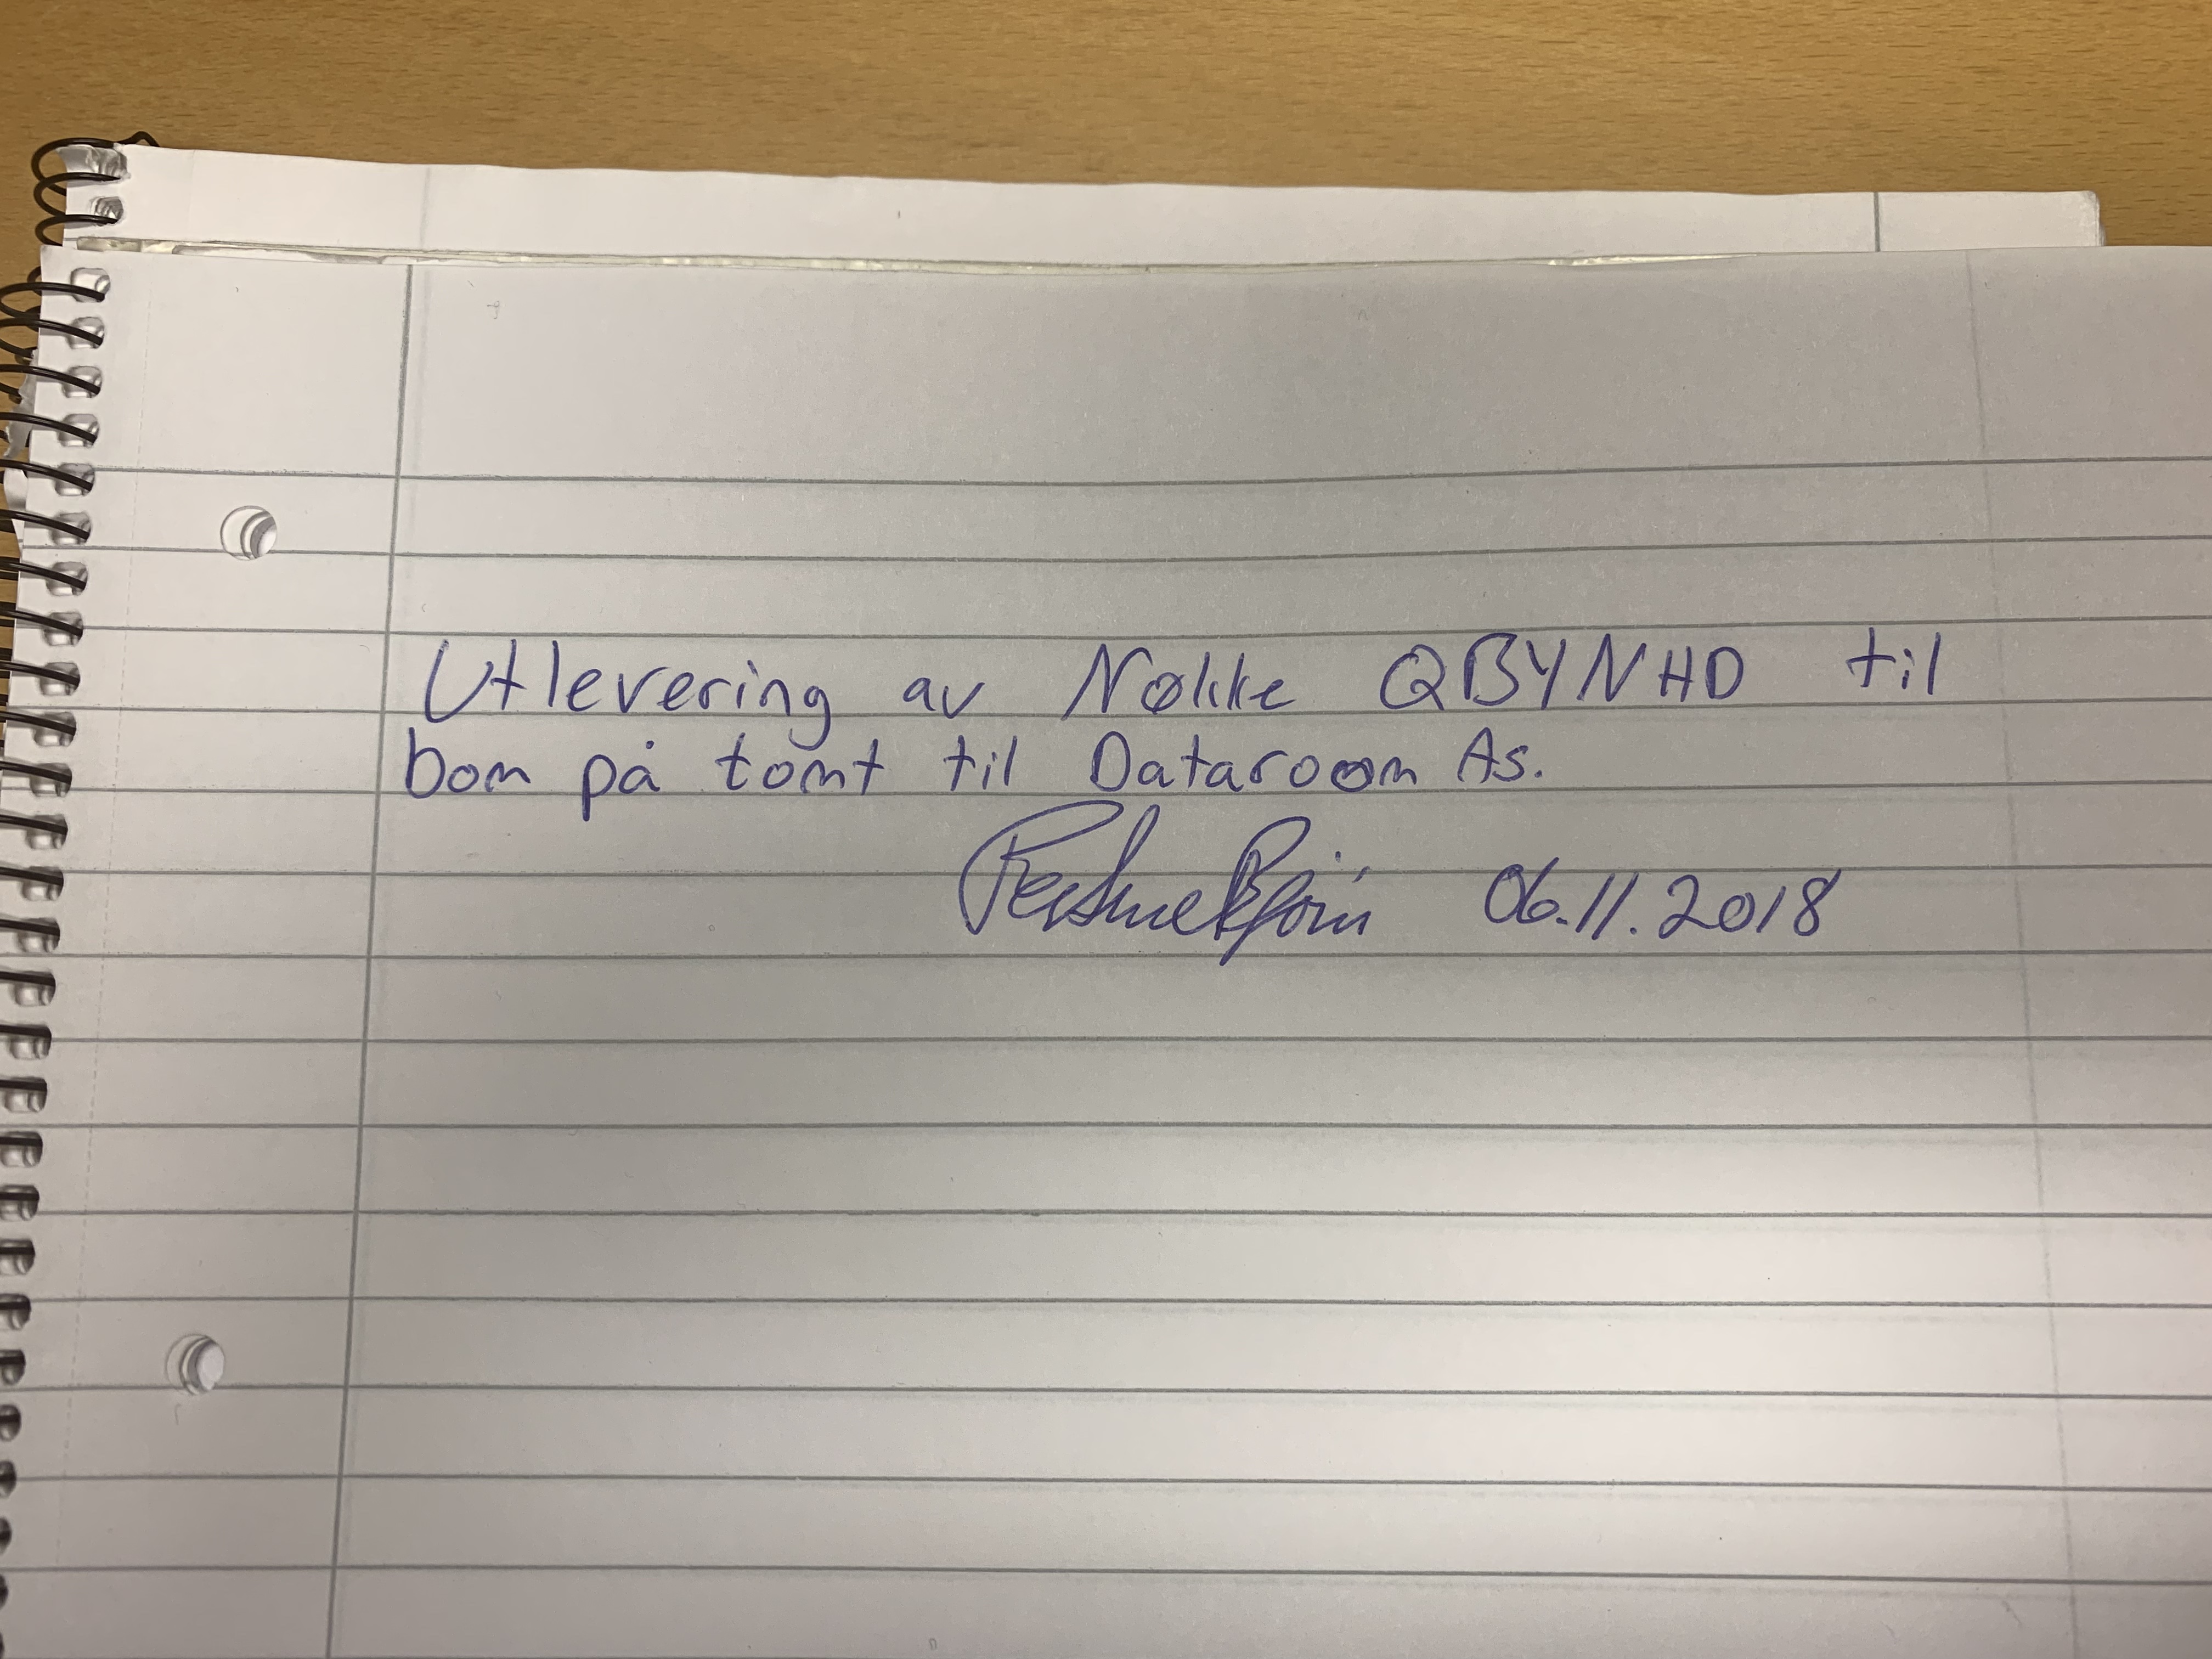 Utlevering av Nøkke QBYNHD til
bom på tomt til Dataroom As.
06.11.2018